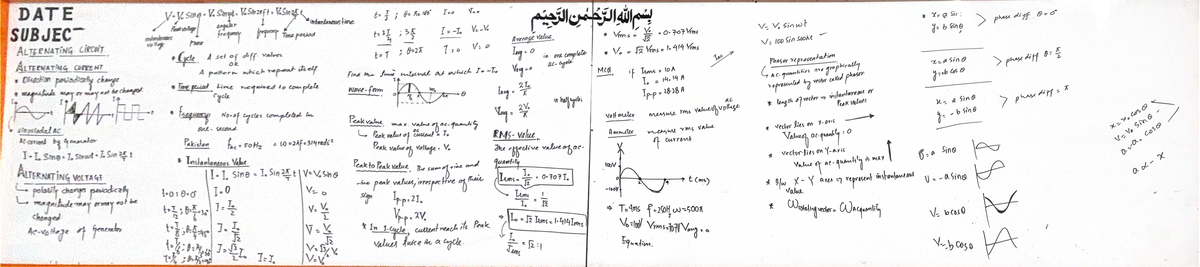 DATE
SUBJEC
ALTERNATING CIRCUIT
ALTERNATING CURRENT
• Direction periodically change
• magnitude may or may not be changed.
sinusoidal ac
ac current by Generator
I = I₀ Sinθ = I₀ sin ωt = I₀ Sin 2π/T t
ALTERNATING VOLTAGE
→ polarity change periodically
→ magnitude may or may not be
changed
Ac-voltage of Generator
V = V₀ Sinθ = V₀ Sin ωt = V₀ Sin 2πft = V₀ Sin 2π/T t
instantaneous voltage
Peak voltage
Phase
angular frequency
frequency
Time period
instantaneous time
* Cycle A set of diff values
OR
A pattern which repeat itself
* Time period time required to complete
cycle
* Frequency No. of cycles completed in
one-second
Pakistan fAC = 50Hz = ω = 2πf = 314 rads⁻¹
* Instantaneous Value
I = I₀ Sinθ = I₀ Sin 2π/T t
V = V₀ Sinθ
t = 0 ; θ = 0°
I = 0
V = 0
I = I₀/2
V = V₀/2
I = I₀/√2
V = V₀/√2
t = T ; θ = 2π I = 0 V = 0
Find the time interval at which I = -I₀
Wave-form
Peak value max. value of ac-quantity
Peak value of current = I₀
Peak value of voltage = V₀
Peak to Peak value The sum of +ive and
-ive peak values, irrespective of their
sign
Ip.p = 2I₀
Vp.p = 2V₀
* In 1-cycle, current reach its Peak
values twice in a cycle.
Average value
Iavg = 0
Vavg = 0
in one complete
ac-cycle
Iavg = 2I₀/π
Vavg = 2V₀/π
in half cycle
RMS-Value.
The effective value of ac-
quantity
Irms = I₀/√2 = 0.707 I₀
I₀ = √2 Irms = 1.414 Irms
I₀/Irms = √2 : 1
بسم الله الرحمن الرحيم
• Vrms = V₀/√2 = 0.707 V₀
• V₀ = √2 Vrms = 1.414 Vrms
MCQ if Irms = 10A
I₀ = 14.14A
Ip.p = 28.28A
Voltmeter measure rms value of ac voltage
Ammeter measure rms value
of current
t (ms)
Equation.
V = V₀ sin ωt
V = 100 Sin 500πt
Phasor representation
ac-quantities are graphically
represented by vector called phasor
* length of vector → instantaneous or
Peak values
* vector lies on x-axis
Value of ac-quantity = 0
* vector lies on Y-axis
Value of ac-quantity is max
* B/w X - Y axes ⇒ represent instantaneous
value
* ω rotating vector = ω ac quantity
• x = a sinθ
y = b sinθ
phase diff θ = 0°
x = a sinθ
y = b cosθ
phase diff θ = π/2
x = a sinθ
y = -b sinθ
phase diff = π
y = a sinθ
V = -a sinθ
V = b cosθ
V = -b cosθ
x = x₀ cosθ
v = v₀ sinθ
a = -a₀ cosθ
a ∝ -x